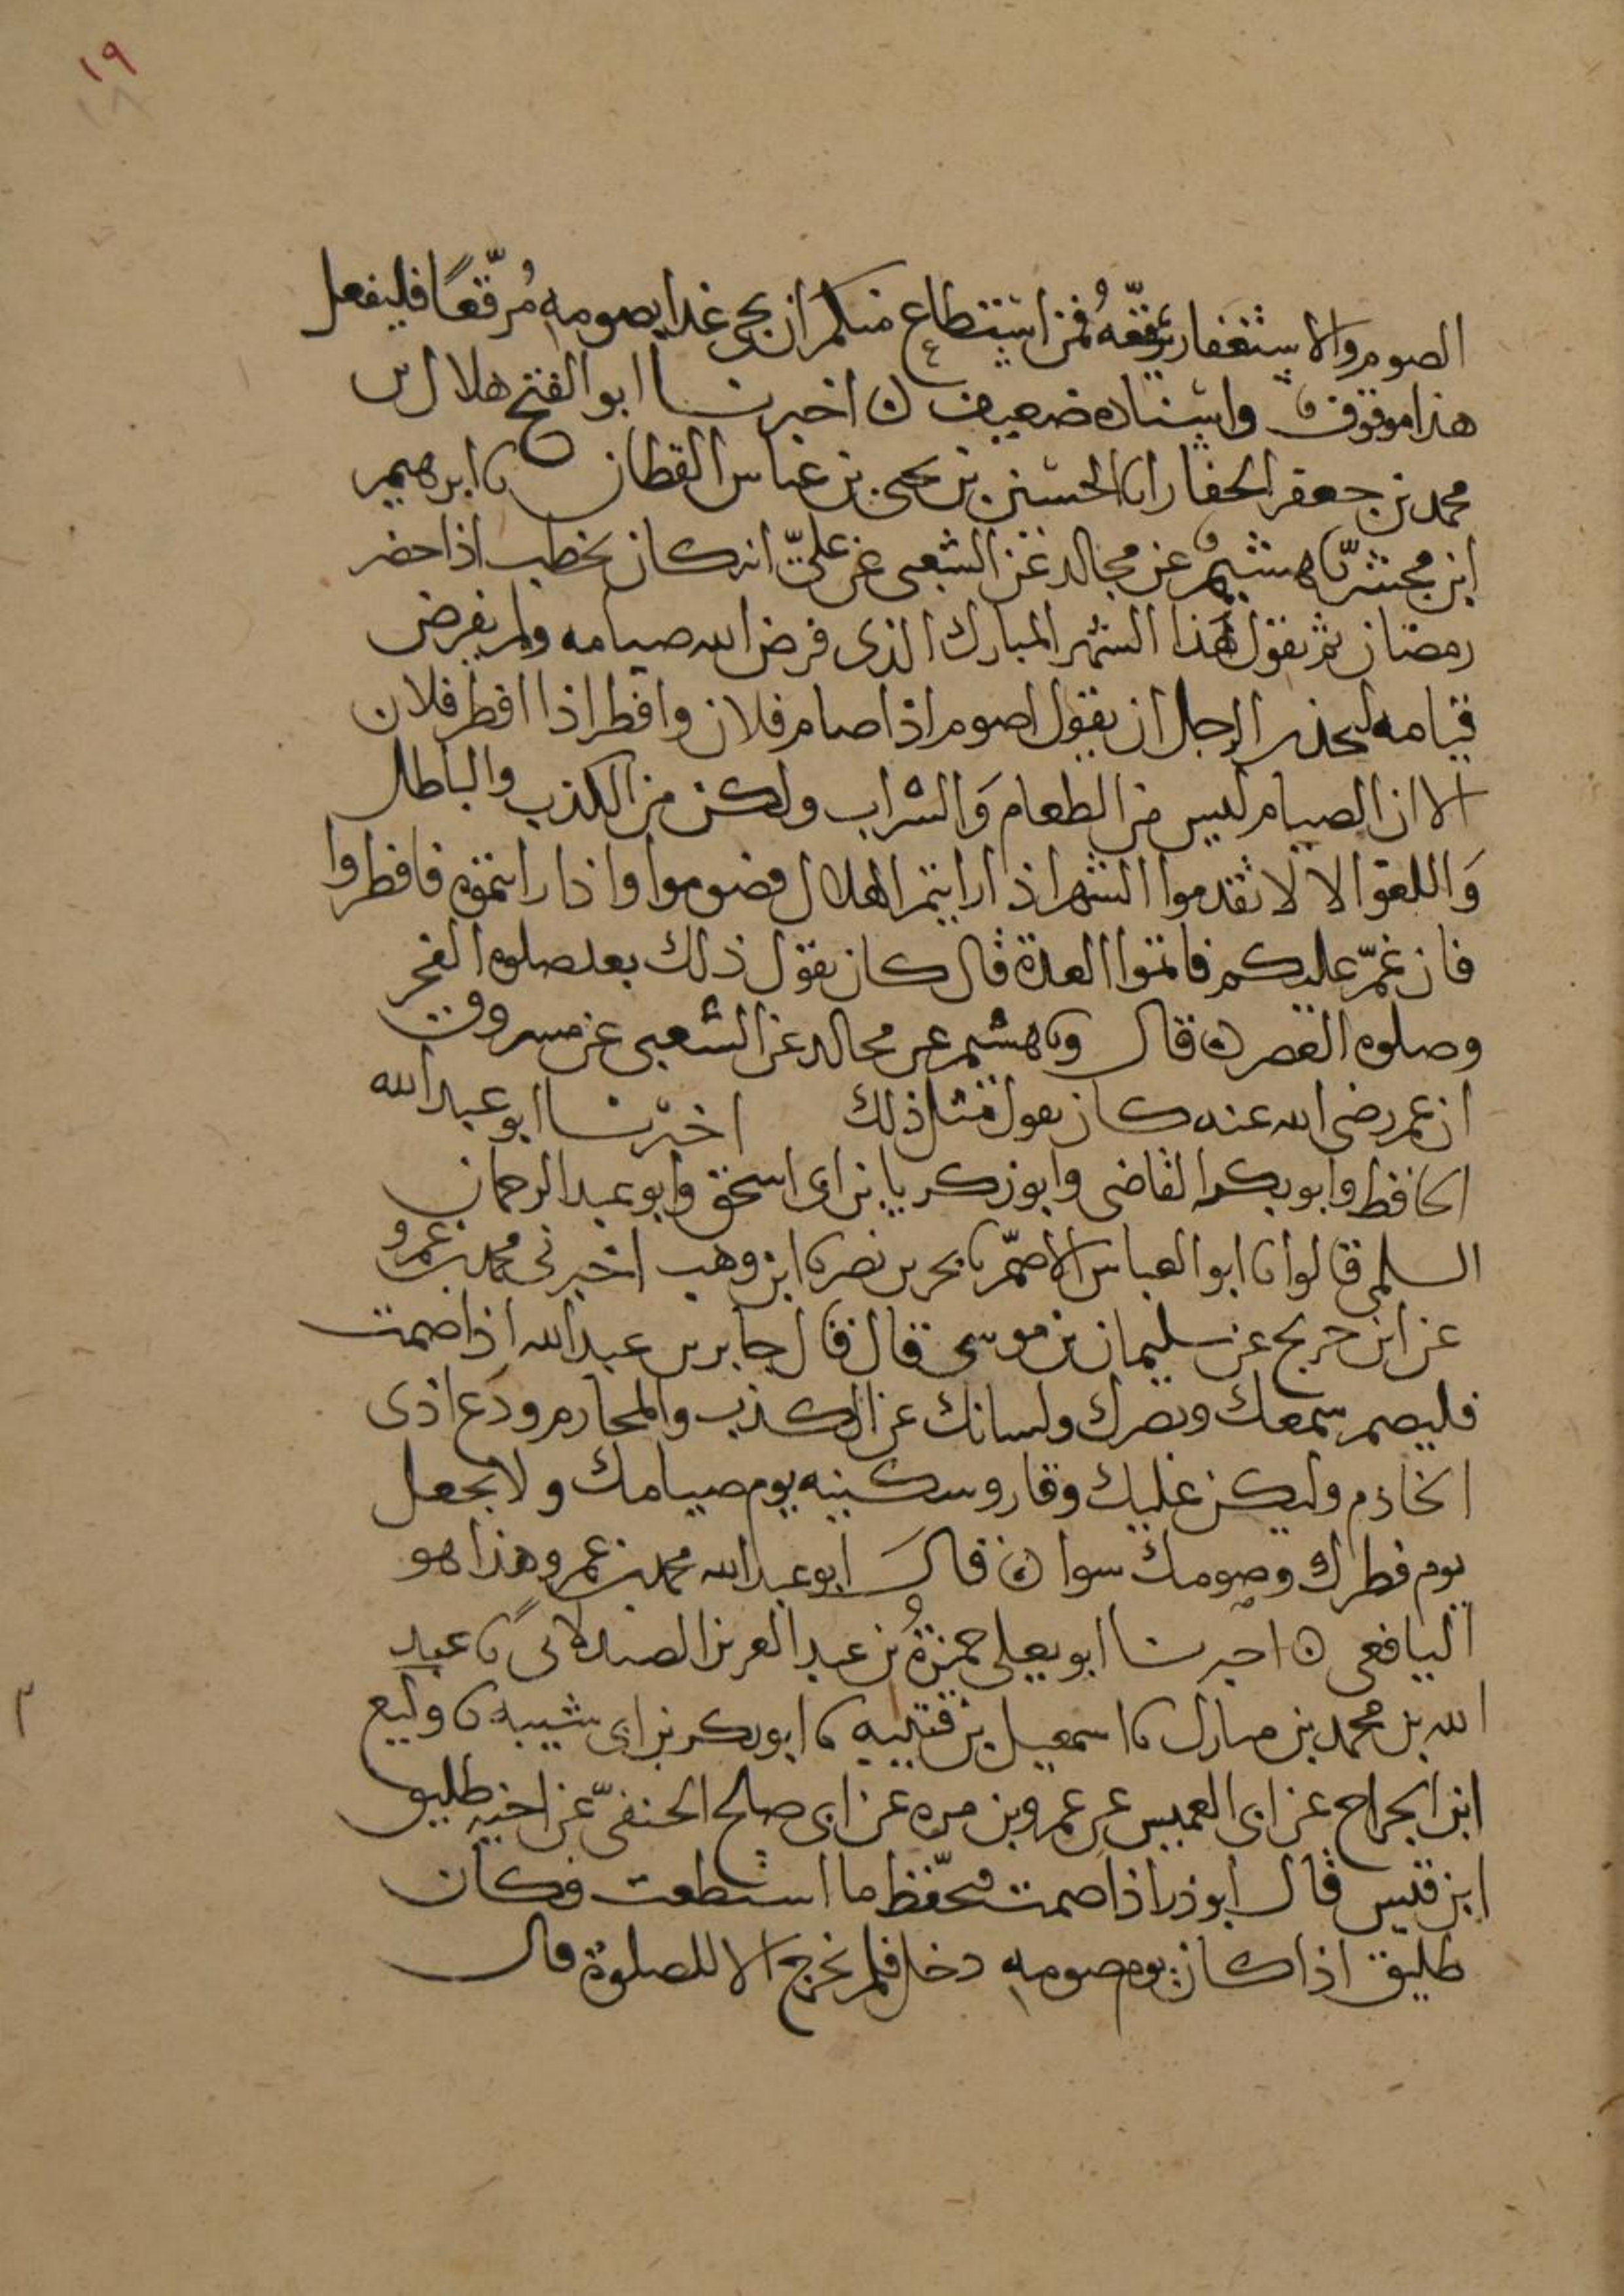 ١٩
الصوم والاستغفار يرقّعه فمن استطاع منكم ان يجى غدا بصومه مُرقّعًا فليفعل
هذا موقوف واسناده ضعيف ه اخبرنا ابو الفتح هلال بن
محمد بن جعفر الحفار انا الحسين بن يحيى بن عياش القطان نا ابرهيم
ابن مجشّر نا هشيم عن مجالد عن الشعبى عن علىّ انه كان يخطب اذا حضر
رمضان ثم يقول هذا الشهر المبارك الذى فرض الله صيامه ولم يفرض
قيامه ليحذر الرجل ان يقول اصوم اذا صام فلان وافطر اذا افطر فلان
الا ان الصيام ليس من الطعام وَالشراب ولكن من الكذب والباطل
وَاللغو الا لا تقدموا الشهر اذا رايتم الهلال فصوموا واذا رايتموه فافطروا
فان غمّ عليكم فاتموا العدة قال كان يقول ذلك بعد صلوه الفجر
وصلوه العصر ه قال ونا هشيم عن مجالد عن الشعبى عن مسروق
ان عمر رضى الله عنه كان يقول مثل ذلك اخبرنا ابو عبد الله
الحافظ وابو بكر القاضى وابو زكريا بن ابى اسحق وابو عبد الرحمان
السلمى قالوا نا ابو العباس الاصمّ نا بحر بن نصر نا ابن وهب اخبرنى محمد بن عمرو
عن ابن جريج عن سليمان بن موسى قال قال جابر بن عبد الله اذا صمت
فليصم سمعك وبصرك ولسانك عن الكذب والمحارم ودَع اذى
الخادم وليكن عليك وقار وسكينه يوم صيامك ولا تجعل
يوم فطرك وصومك سوا ه قال ابو عبد الله محمد بن عمرو هذا هو
اليافعى ه اخبرنا ابو يعلى حمزةُ بن عبد العزيز الصيدلانى نا عبد
الله بن محمد بن مبارك نا اسمعيل بن قتيبه نا ابو بكر بن ابى شيبه نا وكيع
ابن الجراح عن ابى العميس عن عمرو بن مره عن ابى صالح الحنفىّ عن اخيه طليق
ابن قيس قال ابو ذر اذا صمت فتحفّظ ما استطعت وكان
طليق اذا كان يوم صومه دخل فلم يخرج الا للصلوة قال